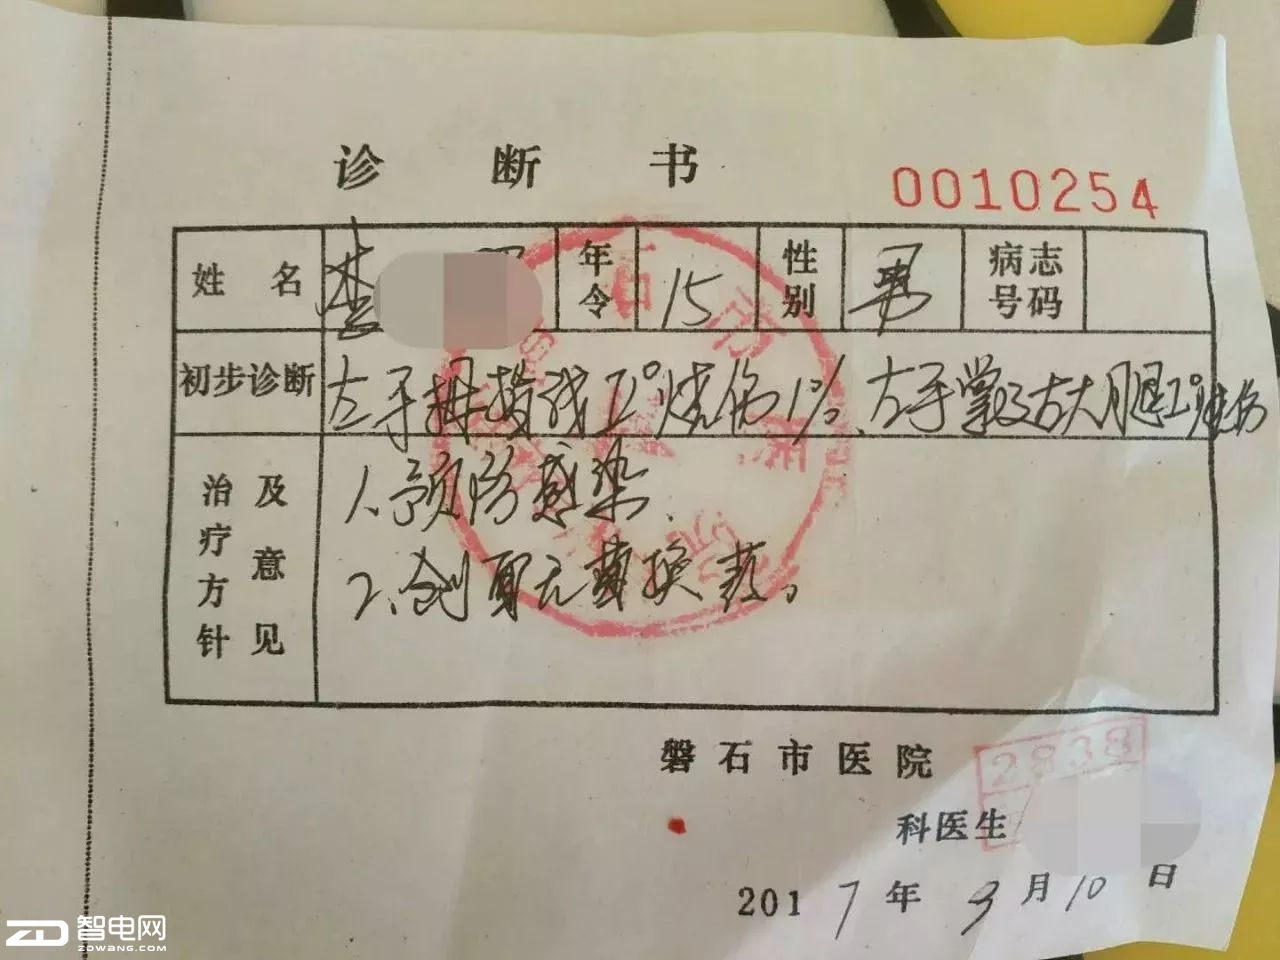 诊断书
0010254
姓名 李 年令 15 性别 男 病志号码
初步诊断 左手拇指浅II°烧伤1%、左手掌及右大腿I°烧伤
治疗方针及意见
1、预防感染.
2、创面无菌换药。
磐石市医院
2838
科医生
2017年9月10日
ZD 智电网
ZDWANG.COM